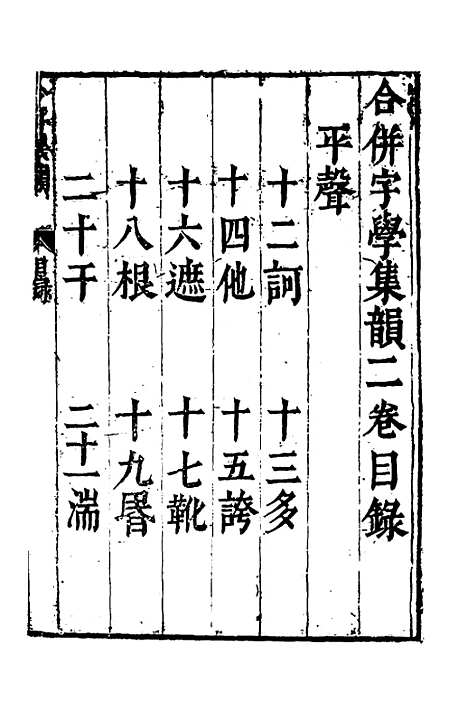 合併字學集韻二卷目錄
平聲
十二訶 十三多
十四他 十五誇
十六遮 十七靴
十八根 十九昬
二十干 二十一湍
目錄